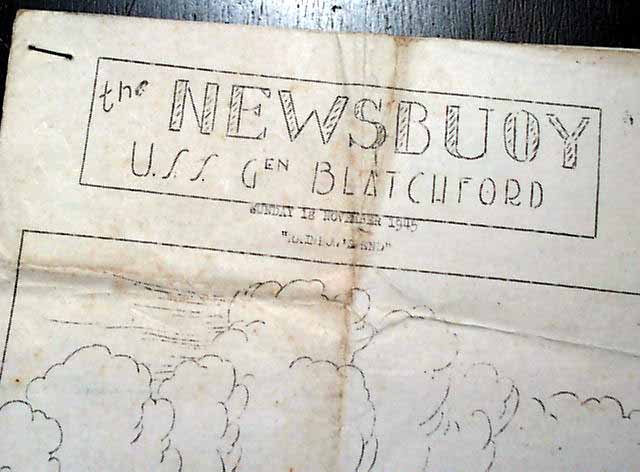 the NEWSBUOY
U.S.S. GEN BLATCHFORD
SUNDAY 18 NOVEMBER 1945